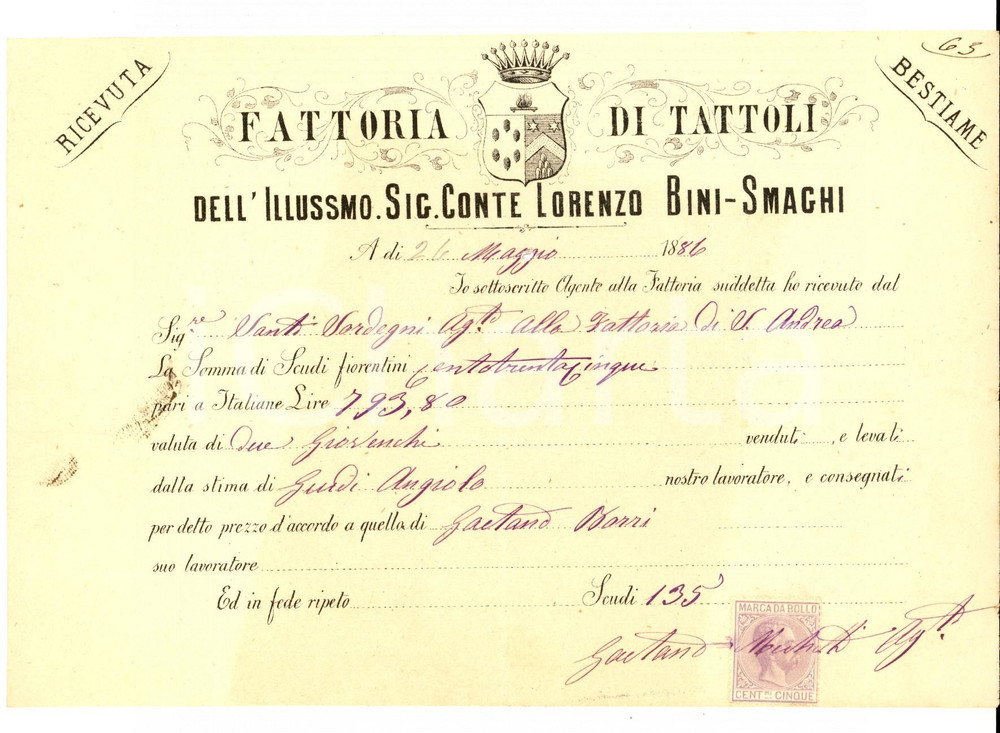 63
RICEVUTA
BESTIAME
FATTORIA DI TATTOLI
DELL'ILLUSSMO. SIG. CONTE LORENZO BINI-SMAGHI
A di 26 Maggio 1886
Io sottoscritto Agente alla Fattoria suddetta ho ricevuto dal
Sigre Santi Sordegni Agte Alla Fattoria di S. Andrea
La Somma di Scudi fiorentini CentotrentaCinque
pari a Italiane Lire 793,80
valuta di due Giovenchi venduti, e levati
dalla stima di Guidi Angiolo nostro lavoratore, e consegnati
per detto prezzo d'accordo a quello di Gaetano
suo lavoratore
Ed in fede ripeto Scudi 135
Gaetano Agte
MARCA DA BOLLO
CENTMI CINQUE